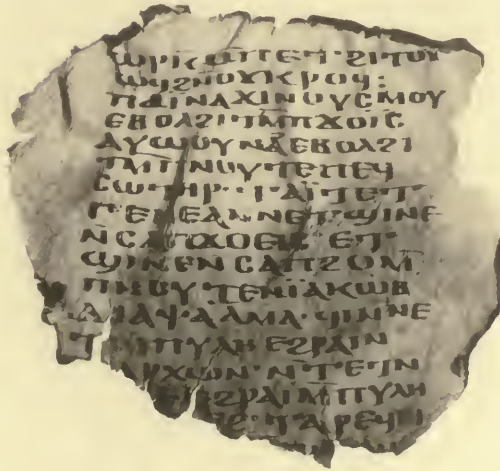 ϩⲓⲧⲟⲩ
ⲱϥ ϩⲛⲟⲩⲕⲣⲟϥ:
ⲡⲁⲓ ⲛⲁϫⲓ ⲛⲟⲩⲥⲙⲟⲩ
ⲉⲃⲟⲗϩⲓⲧⲙⲡϫⲟⲓⲥ
ⲁⲩⲱ ⲟⲩⲛⲁ ⲉⲃⲟⲗϩⲓ
ⲧⲙⲡⲛⲟⲩⲧⲉ ⲡⲉϥ
ⲥⲱⲧⲏⲣ· ⲧⲁⲓ ⲧⲉ ⲧ
ⲅⲉⲛⲉⲁ ⲛⲛⲉⲧϣⲓⲛⲉ
ⲛⲥⲁ ⲡϫⲟⲉⲓⲥ ⲉⲧ
ϣⲓⲛⲉ ⲛⲥⲁ ⲡϩⲟ ⲙ
ⲡⲛⲟⲩⲧⲉ ⲛⲓⲁⲕⲱⲃ
ⲇⲓⲁⲯⲁⲗⲙⲁ· ϥⲓ ⲛⲛⲉ
ⲡⲩⲗⲏ ⲉϩⲣⲁⲓ ⲛ
ⲁⲣⲭⲱⲛ· ⲛⲧⲉⲧⲛ
ϩⲣⲁⲓ ⲙⲡⲩⲗⲏ